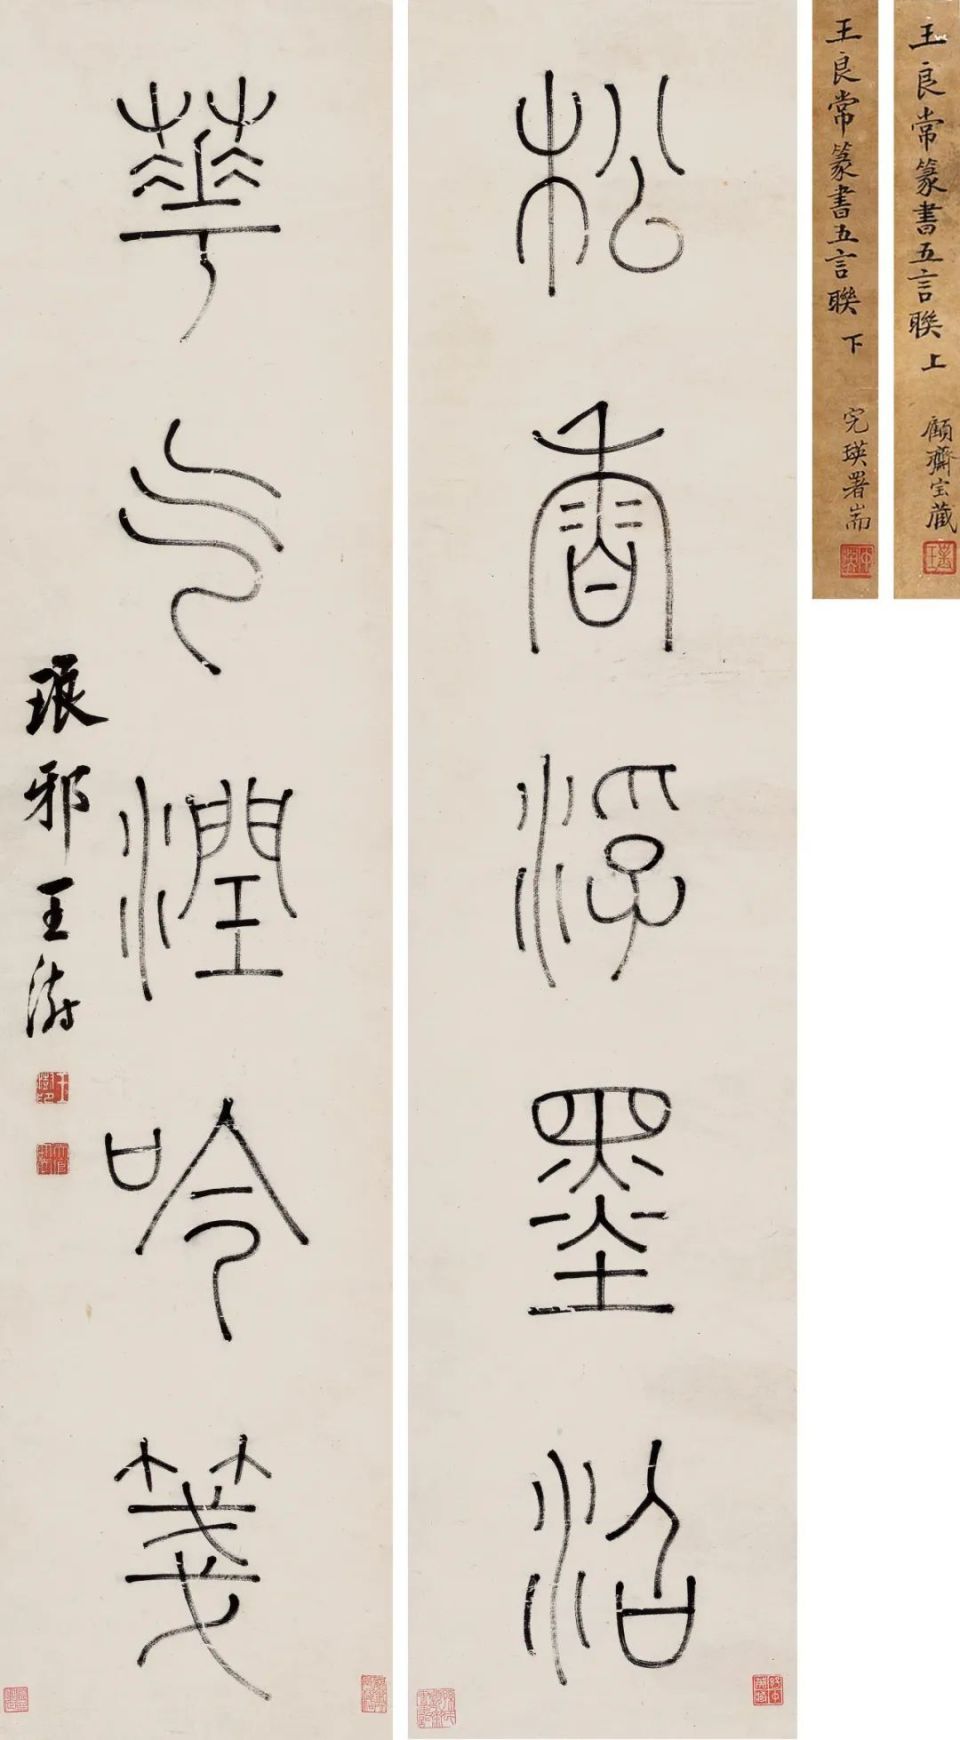 王良常篆書五言聯 上 顧齋宝藏
王良常篆書五言聯 下 完瑛署耑
松香浮墨沼
華气潤吟箋
琅邪王澍